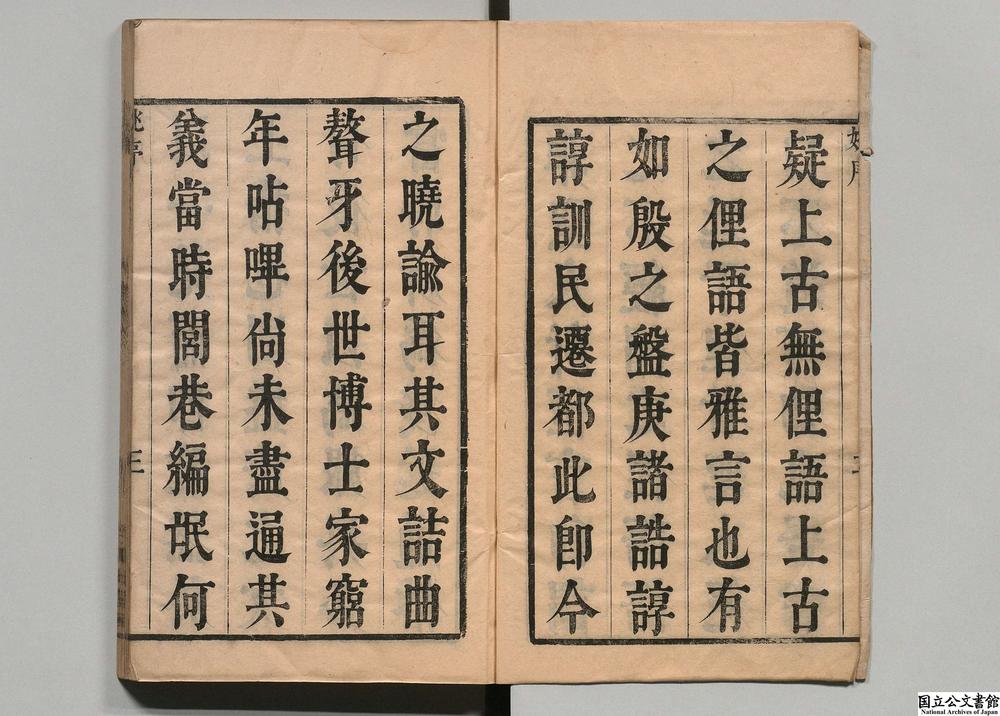 疑上古無俚語上古
之俚語皆雅言也有
如殷之盤庚諸誥諄
諄訓民遷都此卽今
之曉諭耳其文詰曲
聱牙後世博士家窮
年呫嗶尙未盡通其
義當時閭巷編氓何
国立公文書館
National Archives of Japan